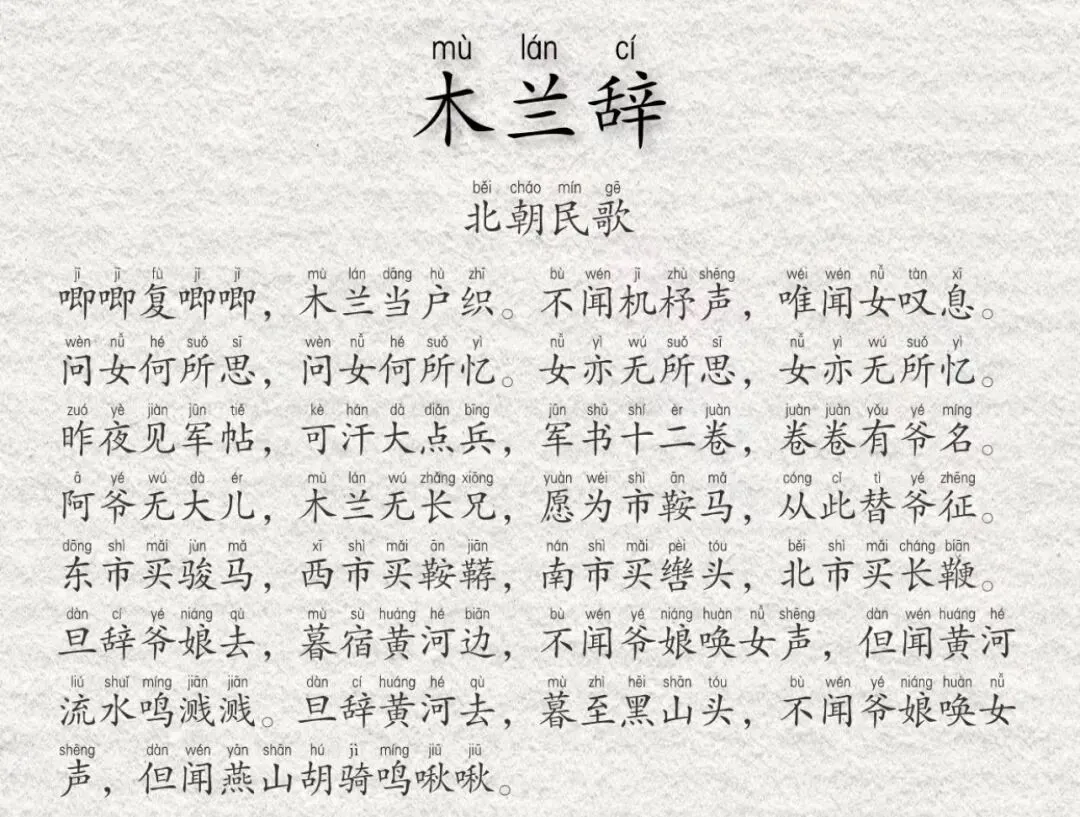 mù lán cí
木兰辞
běi cháo mín gē
北朝民歌
jī jī fù jī jī mù lán dāng hù zhī bù wén jī zhù shēng wéi wén nǚ tàn xī
唧唧复唧唧，木兰当户织。不闻机杼声，唯闻女叹息。
wèn nǚ hé suǒ sī wèn nǚ hé suǒ yì nǚ yì wú suǒ sī nǚ yì wú suǒ yì
问女何所思，问女何所忆。女亦无所思，女亦无所忆。
zuó yè jiàn jūn tiě kè hán dà diǎn bīng jūn shū shí èr juàn juàn juàn yǒu yé míng
昨夜见军帖，可汗大点兵，军书十二卷，卷卷有爷名。
ā yé wú dà ér mù lán wú zhǎng xiōng yuàn wéi shì ān mǎ cóng cǐ tì yé zhēng
阿爷无大儿，木兰无长兄，愿为市鞍马，从此替爷征。
dōng shì mǎi jùn mǎ xī shì mǎi ān jiān nán shì mǎi pèi tóu běi shì mǎi cháng biān
东市买骏马，西市买鞍鞯，南市买辔头，北市买长鞭。
dàn cí yé niáng qù mù sù huáng hé biān bù wén yé niáng huàn nǚ shēng dàn wén huáng hé
旦辞爷娘去，暮宿黄河边，不闻爷娘唤女声，但闻黄河
liú shuǐ míng jiān jiān dàn cí huáng hé qù mù zhì hēi shān tóu bù wén yé niáng huàn nǚ
流水鸣溅溅。旦辞黄河去，暮至黑山头，不闻爷娘唤女
shēng dàn wén yān shān hú jì míng jiū jiū
声，但闻燕山胡骑鸣啾啾。